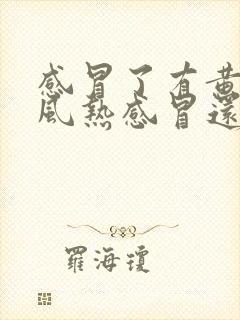 感冒了有黄
风热感冒还
罗海琼